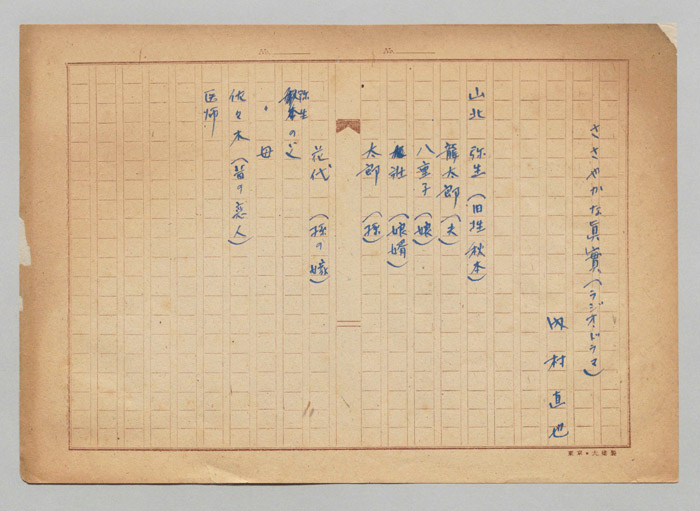 ささやかな眞實(ラジオ・ドラマ)
内村直也
山北 弥生(旧姓 秋本)
藤太郎(夫)
八重子(娘)
壮(娘婿)
太郎(孫)
花代(孫の嫁)
弥生の父
〃 母
佐々木(昔の恋人)
医師